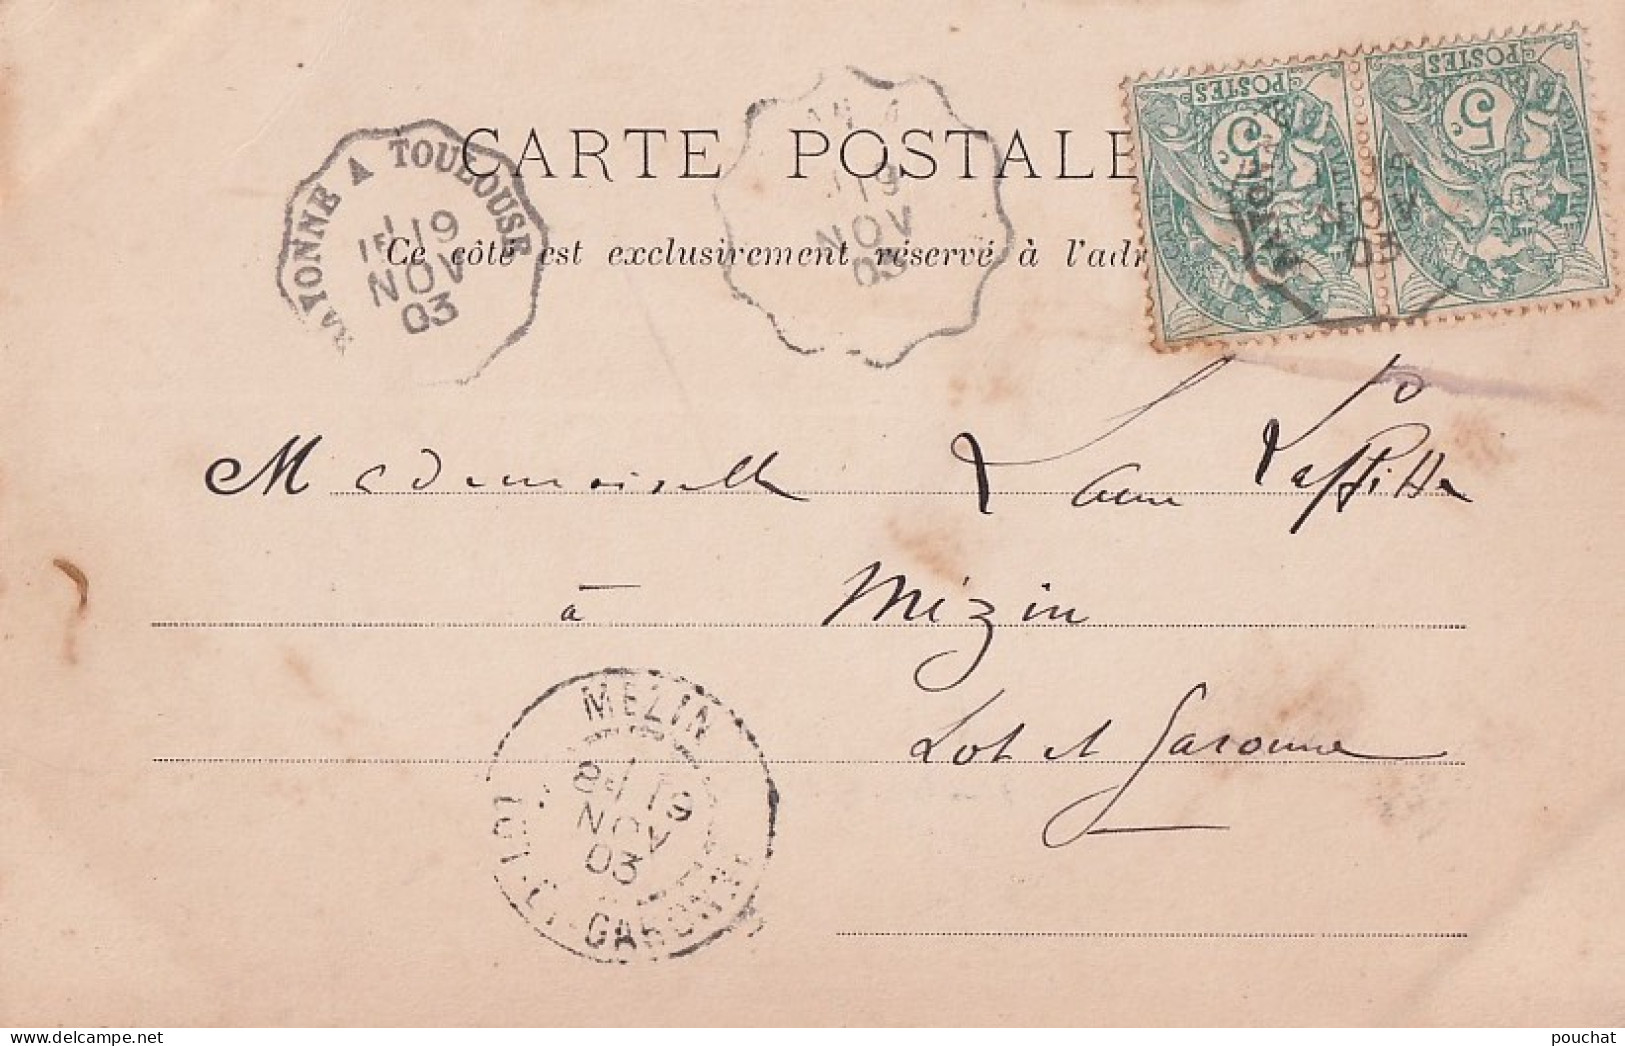 CARTE POSTALE
Ce côté est exclusivement réservé à l'adr
BAYONNE A TOULOUSE
1E 19
NOV
03
19
NOV
03
POSTES
5c
POSTES
5c
NOV
03
Mademoiselle Laffitte
à Mézin
Lot et Garonne
MEZIN
19
NOV
03
LOT-ET-GARONNE
pouchat